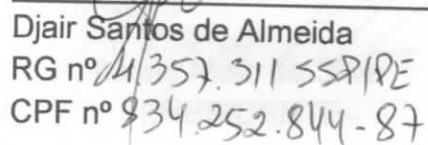 Djair Santos de Almeida
RG nº 4/357.311 SSP/PE
CPF nº 834.252.844-87